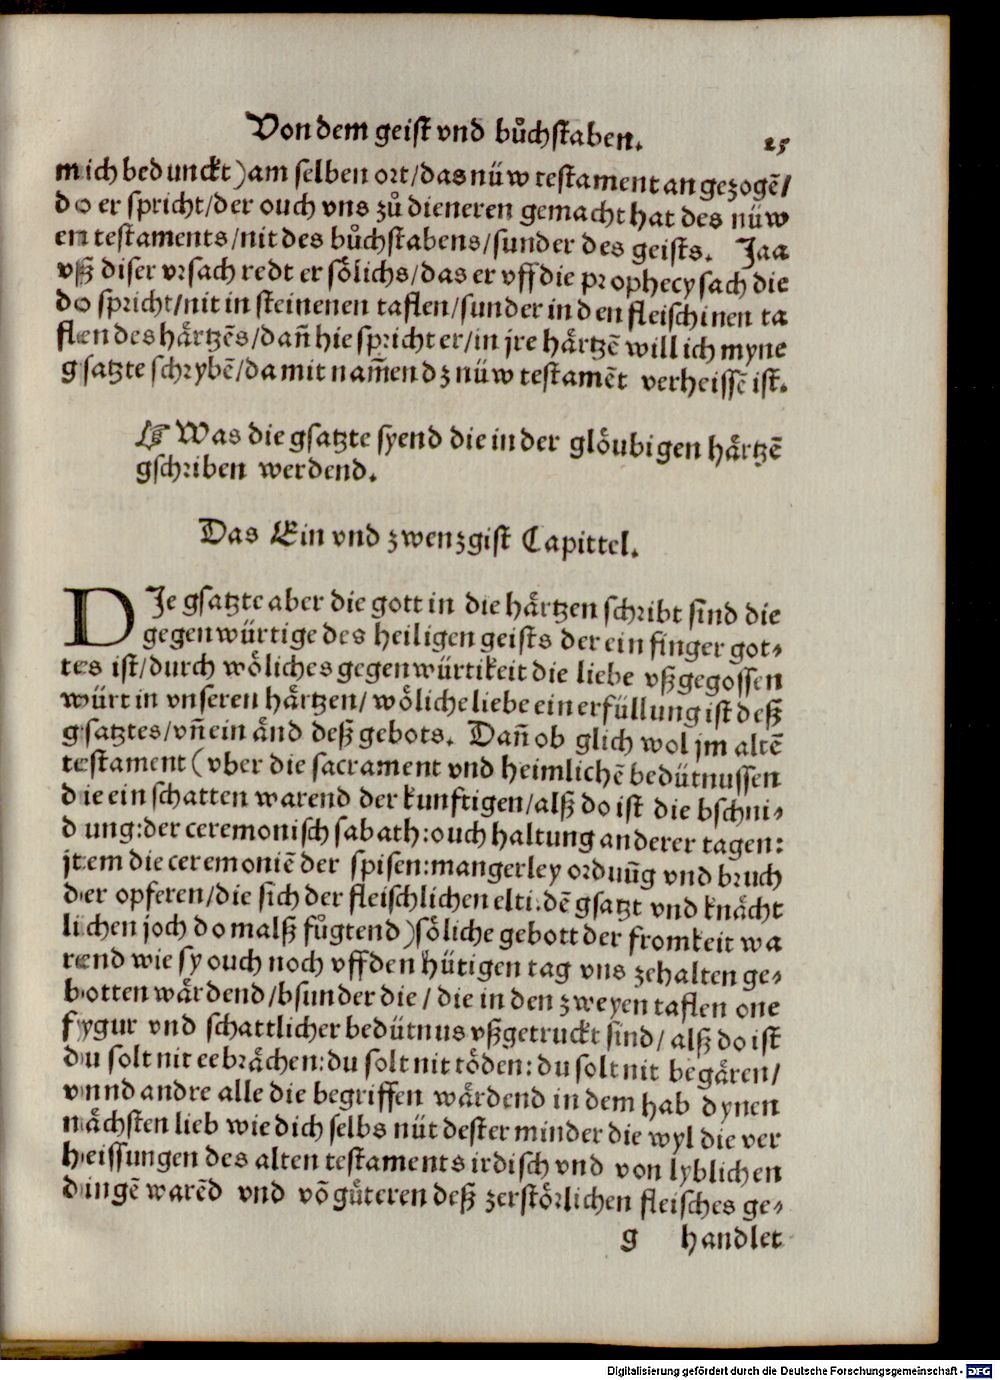 Von dem geist vnd bůchstaben. 25
mich bedunckt)am selben ort/das nüw testament angezogē/
do er spricht/der ouch vns zů dieneren gemacht hat des nüw
en testaments/nit des bůchstabens/sunder des geists. Jaa
vß diser vrsach redt er sölichs/das er vff die prophecy sach die
do spricht/nit in steinenen taflen/sunder in den fleischinen ta
flen des hårtzēs/dañ hie spricht er/in jre hårtzē will ich myne
gsatzte schrybē/damit nam̃end z nüw testamēt verheissē ist.
☞ Was die gsatzte syend die in der glöubigen hårtzē
gschriben werdend.
Das Ein vnd zwenzgist Capittel.
DJe gsatzte aber die gott in die hårtzen schribt sind die
gegenwürtige des heiligen geists der ein finger got⸗
tes ist/durch wöliches gegenwürtikeit die liebe vßgegossen
würt in vnseren hårtzen/ wöliche liebe ein erfüllung ist deß
gsatztes/vñ ein ånd deß gebots. Dañ ob glich wol jm altē
testament (vber die sacrament vnd heimlichē bedütnussen
die ein schatten warend der kunftigen/alß do ist die bschni⸗
dung:der ceremonisch sabath:ouch haltung anderer tagen:
jtem die ceremoniē der spisen:mangerley ordnũg vnd bruch
der opferen/die sich der fleischlichen elti.dē gsatzt vnd knåcht
lichen joch domalß fůgtend)söliche gebott der fromkeit wa
rend wie sy ouch noch vff den hütigen tag vns zehalten ge⸗
botten wårdend/bsunder die/ die in den zweyen taflen one
fygur vnd schattlicher bedütnus vßgetruckt sind/ alß do ist
du solt nit eebråchen:du solt nit töden:du solt nit begåren/
vnnd andre alle die begriffen wårdend in dem hab dynen
nåchsten lieb wie dich selbs nüt dester minder die wyl die ver
heissungen des alten testaments irdisch vnd von lyblichen
dingē warēd vnd vō gůteren deß zerstörlichen fleisches ge⸗
g handlet
Digitalisierung gefördert durch die Deutsche Forschungsgemeinschaft - DFG